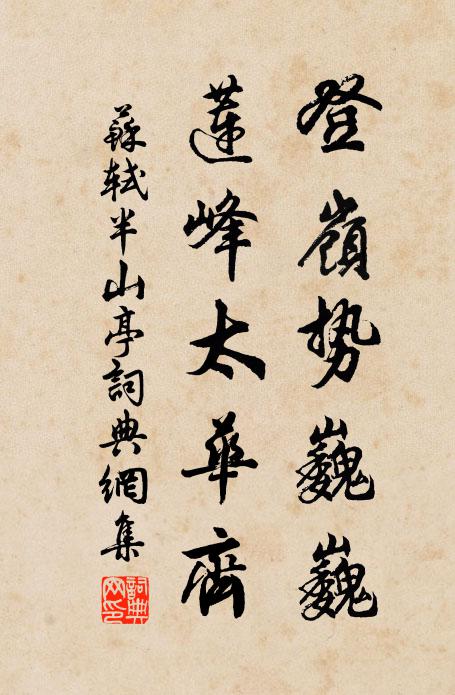 登嶺勢巍巍
蓮峰太華齊
蘇軾半山亭詞典網集
詞典網印